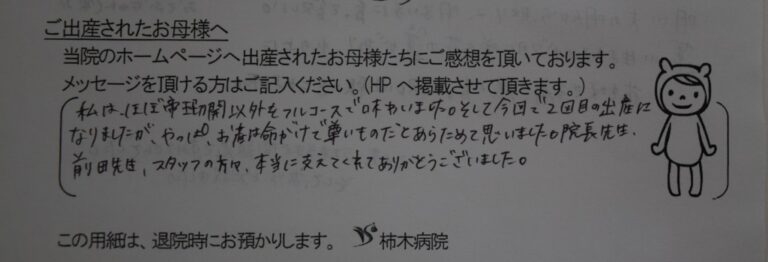 ご出産されたお母様へ
当院のホームページへ出産されたお母様たちにご感想を頂いております。
メッセージを頂ける方はご記入ください。(HPへ掲載させて頂きます。)
私は、ほぼ帝王切開以外をフルコースで味わいました。そして今回で2回目の出産に
なりましたが、やっぱ、お産は命がけで尊いものだとあらためて思いました。院長先生、
前田先生、スタッフの方々、本当に支えてくれてありがとうございました。
この用紙は、退院時にお預かりします。 柿木病院